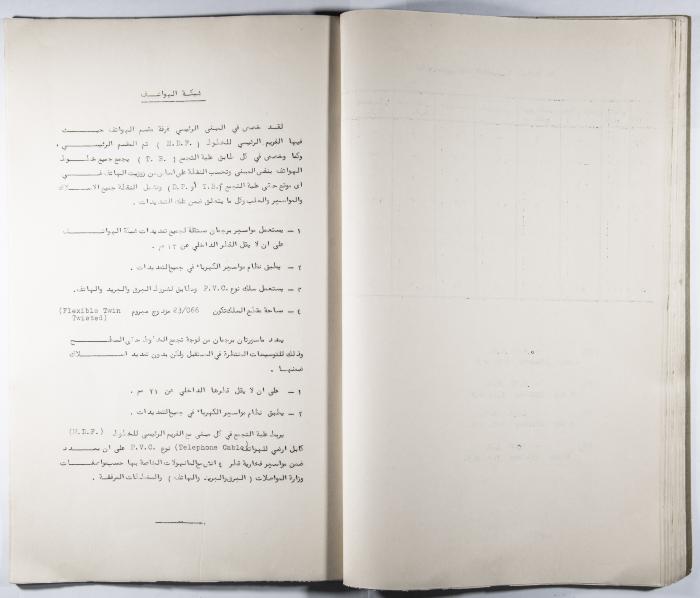 شبكة الهواتف
لقد خصص في المبنى الرئيسي غرفة مقسم الهواتف حيث
فيها الفريم الرئيسي للخطوط ( M.D.F. ) ثم المقسم الرئيسي ،
وكما وخصص في كل طابق علبة التجمع ( T. B. ) يجمع جميع خطوط
الهواتف بنفس المبنى وتحسب النقطة على اساس من زوزيت الهاتف في
اى موقع حتى علبة التجمع T.B. أو D.P.) وتشمل النقطة جميع الاسلاك
والمواسير والعلب وكل ما يتعلق ضمن تلك التمديدات .
١ – يستعمل مواسير برجمان مستقلة لجميع تمديدات شبكة الهواتف
على ان لا يقل القطر الداخلي عن ١٣ م .
٢ – يطبق نظام مواسير الكهرباء في جميع التمديدات .
٣ – يستعمل سلك نوع P.V.C. ومطابق لشروط البرق والبريد والهاتف .
٤ – مساحة مقطع السلك تكون 23/066 مزدوج مبروم (Flexible Twin
Twisted)
يمدد ماسورتان برجمان من لوحة تجمع الخطوط حتى السطح
وذلك للتوسيعات المنتظرة في المستقبل ولكن بدون تمديد اسلاك
ضمنها .
١ – على ان لا يقل قطرها الداخلي عن ٢١ م .
٢ – يطبق نظام مواسير الكهرباء في جميع التمديدات .
يربط علبة التجمع في كل مبنى مع الفريم الرئيسي للخطوط (M.D.F.)
كابل ارضي للهواتف (Telephone Cable) نوع P.V.C. على ان يمدد
ضمن مواسير فخارية قطر ٤ انش مع المانهولات الخاصة بها حسب مواصفات
وزارة المواصلات ( البرق والبريد والهاتف ) والمخططات المرفقة .